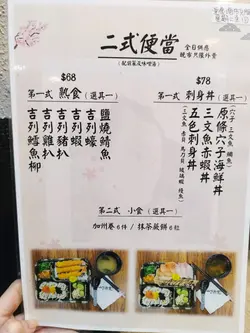 二式便當
全日供應
晚市只限外賣
(配前菜及味噌湯)
$68
第一式 熟食 (選其一)
鹽燒鯖魚
吉列蠔
吉列蝦
吉列豬扒
吉列雞扒
吉列鱈魚柳
$78
第一式 刺身丼 (選其一)
原條穴子海鮮丼
(穴子 三文魚 鯛魚)
三文魚赤蝦丼
五色刺身丼
(三文魚 赤貝 馬刀貝 玻璃蝦 鯛魚)
第二式 小食 (選其一)
加州卷6件 / 抹茶蕨餅6粒